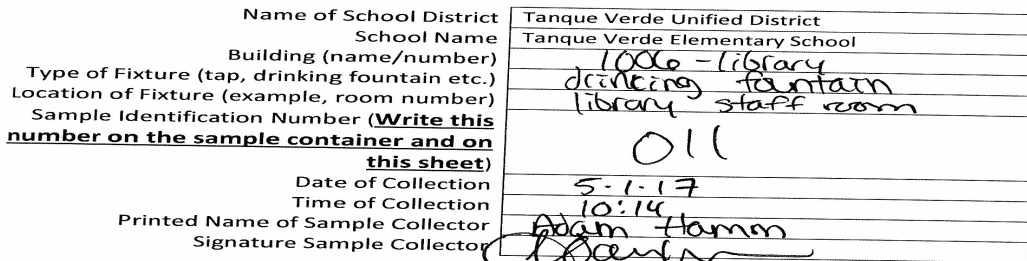 Name of School District Tanque Verde Unified District
School Name Tanque Verde Elementary School
Building (name/number) 1006 - library
Type of Fixture (tap, drinking fountain etc.) drinking fountain
Location of Fixture (example, room number) library staff room
Sample Identification Number (Write this
number on the sample container and on
this sheet) 011
Date of Collection 5-1-17
Time of Collection 10:14
Printed Name of Sample Collector Adam Hamm
Signature Sample Collector